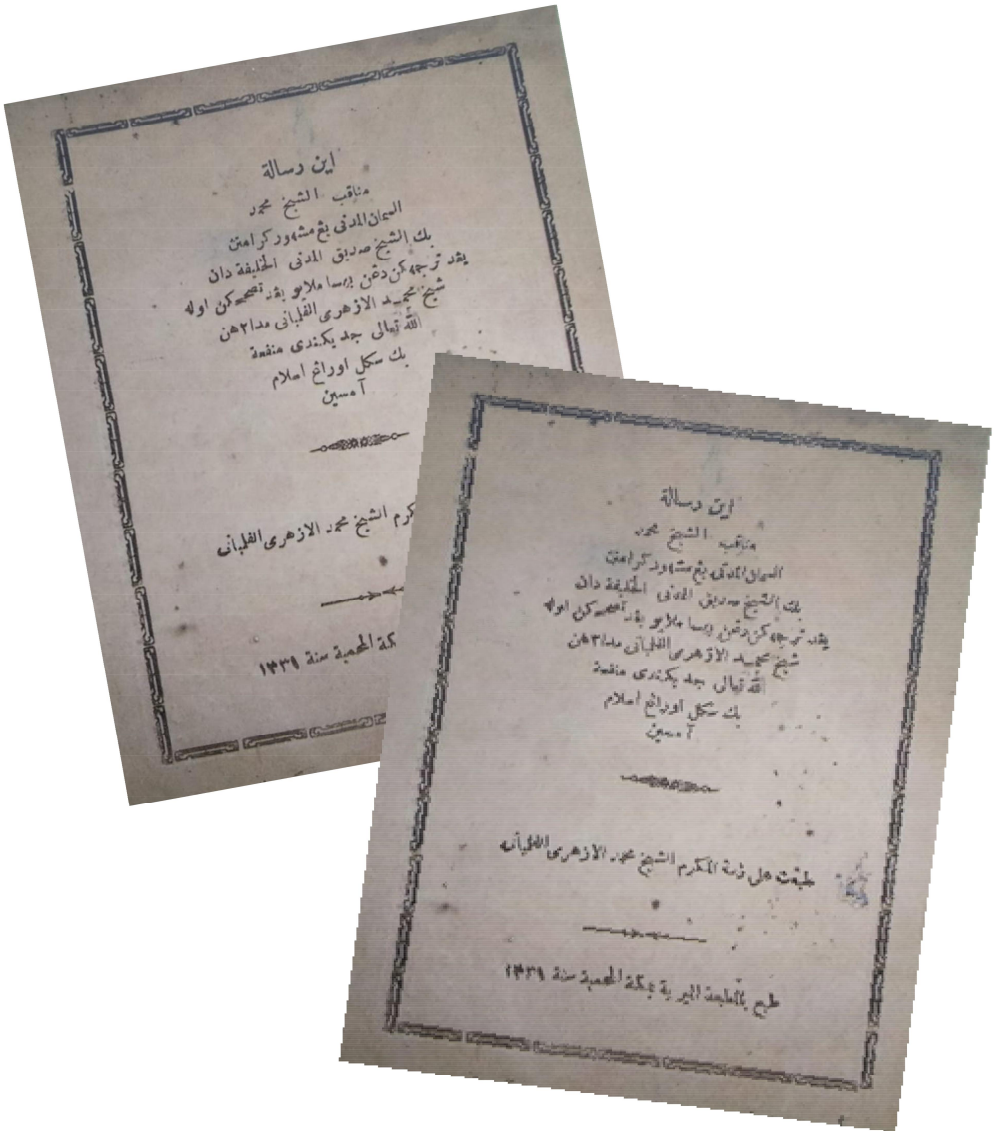 اين رسالة
مناقب الشيخ محمد
السمان المدنى يغ مشهور كرامتن
بك الشيخ صديق المدنى الخليفة دان
يڠد ترجمهكن دغن بهسا ملايو يڠد تصحيحكن اوله
شيخ محمد الازهرى الفلمبانى مدا٢هن
الله تعالى جد يكندى منفعة
بك سكل اورانغ اسلام
آمين
كرم الشيخ محمد الازهرى الفلمبانى
كة المحمية سنة ١٣٣١
اين رسالة
مناقب الشيخ محمد
السمان المدنى يغ مشهور كرامتن
بك الشيخ صديق المدنى الخليفة دان
يڠد ترجمهكن دغن بهسا ملايو يڠد تصحيحكن اوله
شيخ محمد الازهرى الفلمبانى مدا٢هن
الله تعالى جد يكندى منفعة
بك سكل اورانغ اسلام
آمين
طبعت على ذمة المكرم الشيخ محمد الازهرى الفلمبانى
طبع بالمطبعة الميرية بمكة المحمية سنة ١٣٣١